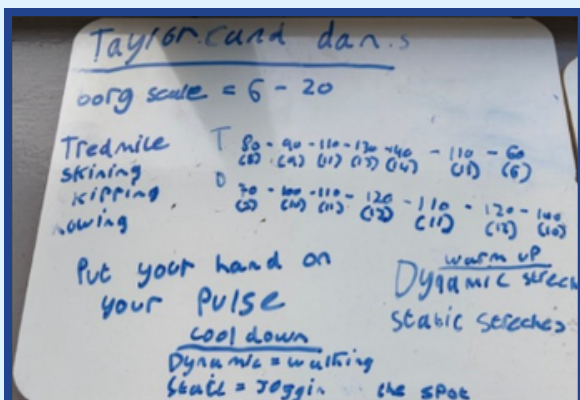 Taylor.cand dan.s
borg scale = 6 - 20
Tredmile
skining
kipping
rowing
T 80 - 90 - 110 - 130 - 140 - 110 - 60
(8) (9) (11) (13) (14) (11) (6)
D 70 - 100 - 110 - 120 - 110 - 120 - 100
(10) (11) (12) (11) (12) (10)
Put your hand on
your Pulse
warm up
Dynamic strech
static streches
cool down
Dynamic = walking
Static = joggin the spot